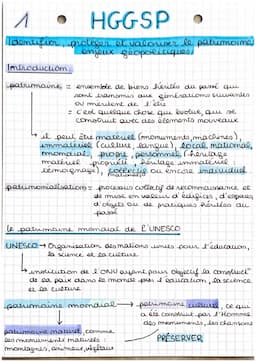 1 HGGSP
Identifier, protéger et valoriser le patrimoine,
enjeux géopolitiques
Introduction:
patrimoine = ensemble de biens hérités du passé qui
sont transmis aux générations suivantes
ou méritent de l'être
= c'est quelque chose qui évolue, qui se
construit avec des éléments nouveaux
↳ il peut être matériel (monuments, machines),
immatériel (culture, langue), local, national
mondial, propre, personnel (héritage
matériel propriété, héritage immatériel
témoignage), collectif ou encore individuel
patrimonialisation = processus collectif de reconnaissance et
de mise en valeur d'édifices, d'espaces
d'objets ou de pratiques héritées du
passé
Le patrimoine mondial de l'UNESCO
UNESCO → Organisation des nations unies pour l'éducation,
la science et la culture
↳ institution de l'ONU ayant pour objectif la construct°
de la paix dans le monde par l'éducation, la science
et la culture.
patrimoine mondial → patrimoine culturel, ce qui
a été construit par l'Homme
des monuments, les chansons
patrimoine naturel, comme
les monuments naturels:
montagnes, animaux, végétaux
PRÉSERVER